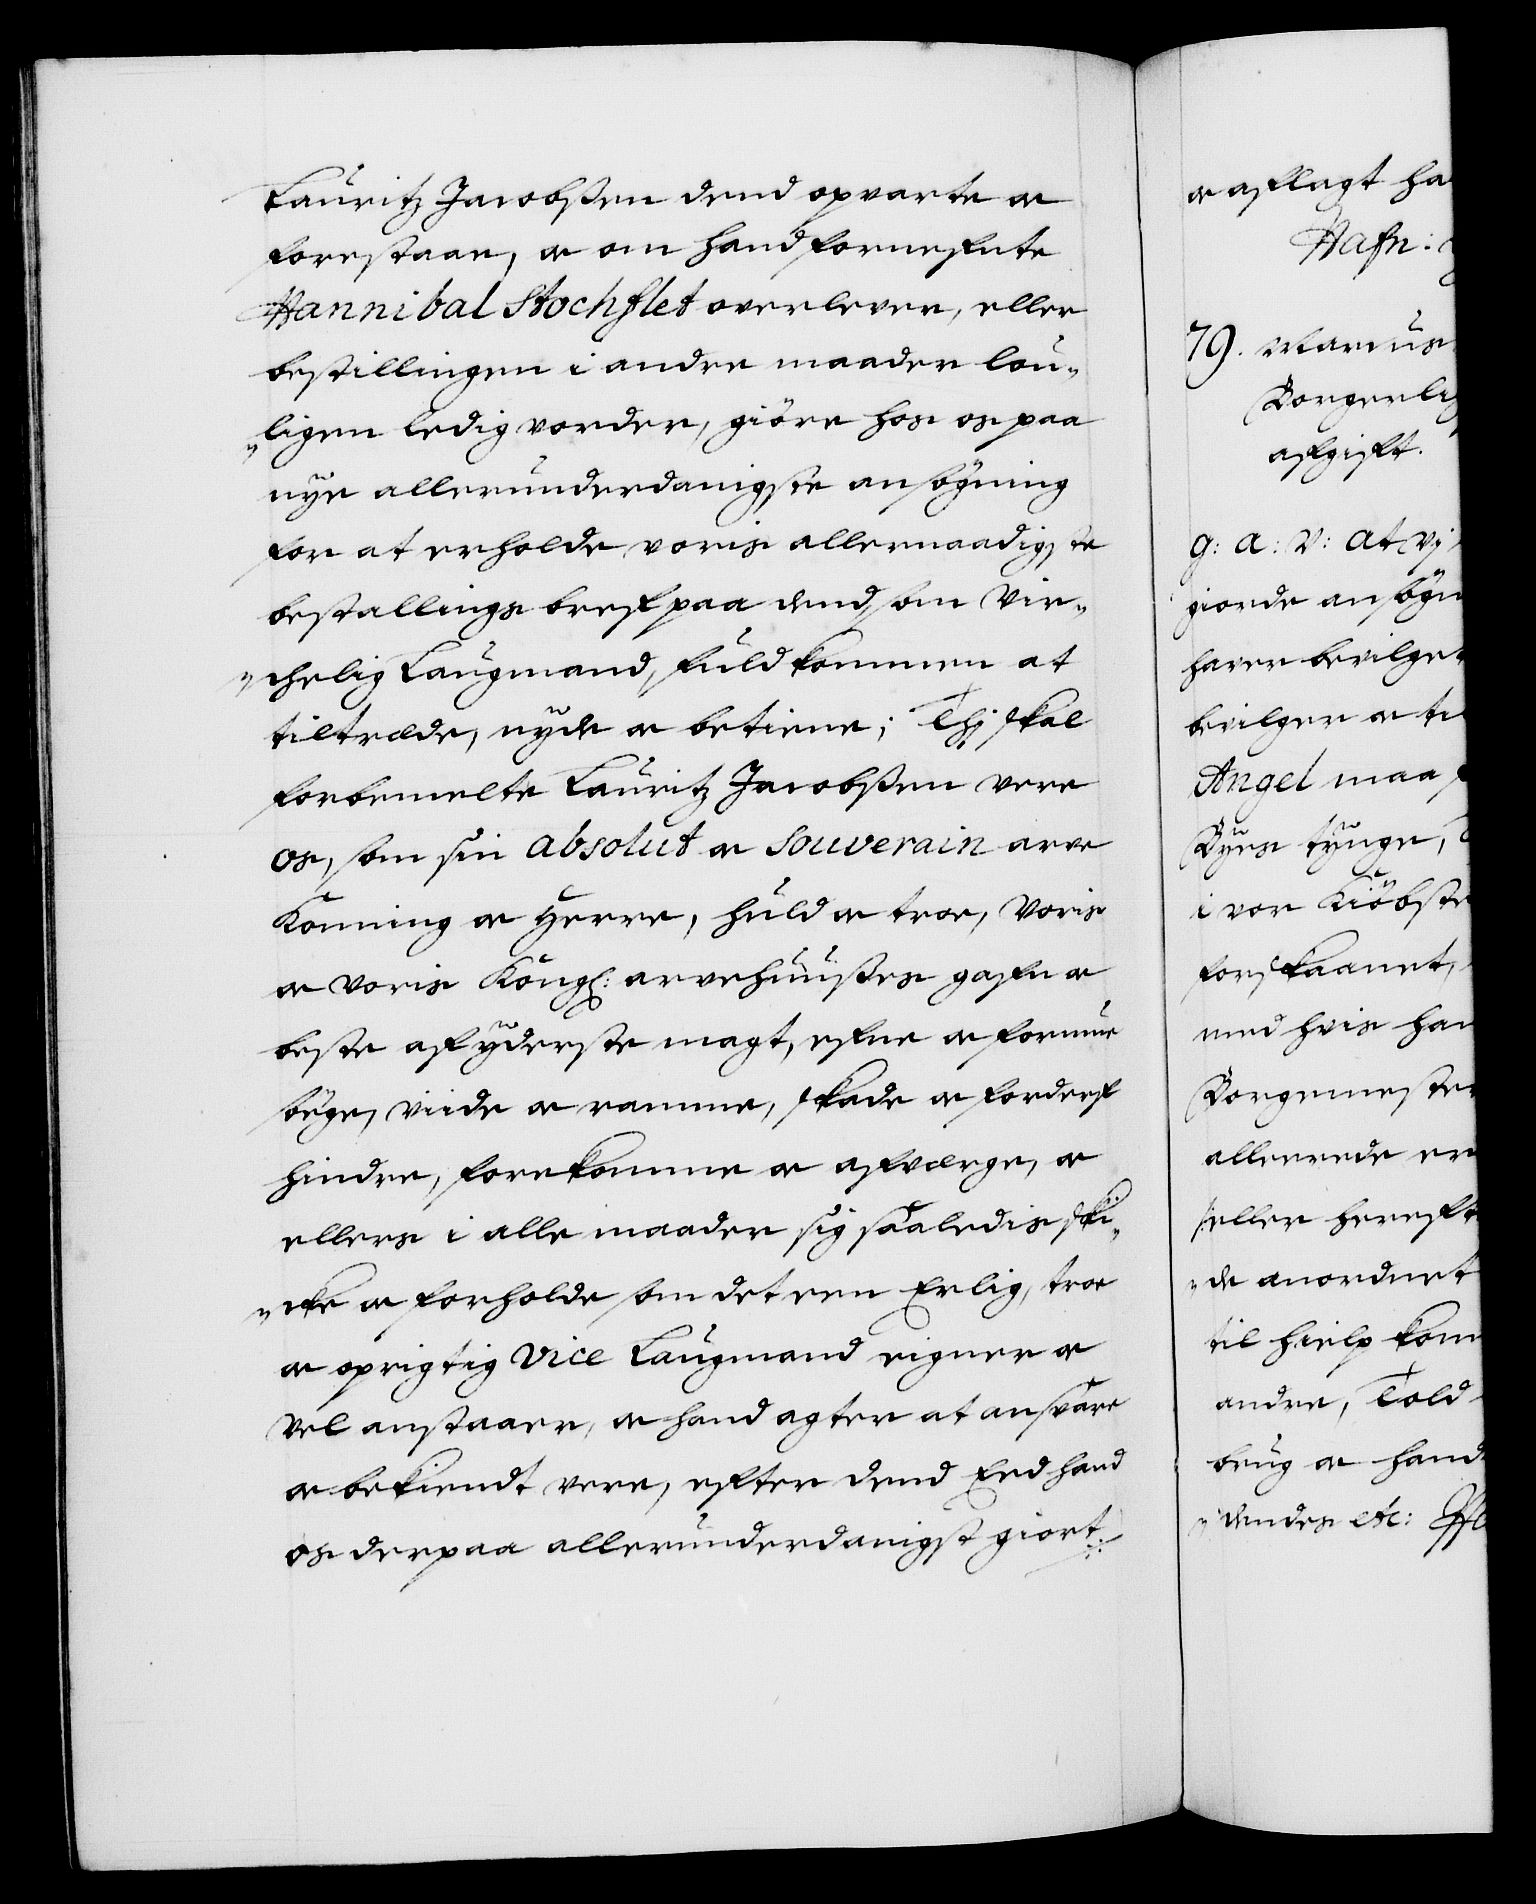 Lauritz Jacobssen dend opvarte oc
forestaae, oc om hand fornefnte
Hannibal Stochflet overlever, eller
bestillingen i andre maader lou-
ligen ledig vorder, giöre hos os paa
nye allerunderdanigste ansögning
for at erholde voris allernaadigste
bestallings bref paa dend, som Vir-
chelig Laugmand, fuldkommen at
tiltræde, nyde oc betiene; Thj skal
forbemelte Lauritz Jacobssen vere
os, som sin absolut oc souverain arve
Konning oc Herre, huld oc troe, Voris
oc Voris Kongl: arvehuusses gafn oc
beste af yderste magt, efne oc formue
söge, viide oc ramme, skade oc forderf
hindre, forekomme oc afværge, oc
ellers i alle maader sig saaledis ski-
cke oc forholde som det een Erlig, troe
oc oprigtig Vice Laugmand eigner oc
vel anstaaer, oc hand agter at ansvare
oc bekiendt vere, efter dend Eed hand
os derpaa allerunderdanigst giort
oc aflagt ha
Hafn:
79. Marcus
Borgerlig
afgift.
g: a: V: at Vj
giorde ansögn
haver bevilge
bevilger oc ti
Angel maa f
Byes tynge,
i vor Kiöbste
forskaanet,
med hvis han
Borgemester
allerede er
eller hereft
de anordnet
til hielp kom
andre, Told
brug oc hand
dendes etc: Ffl